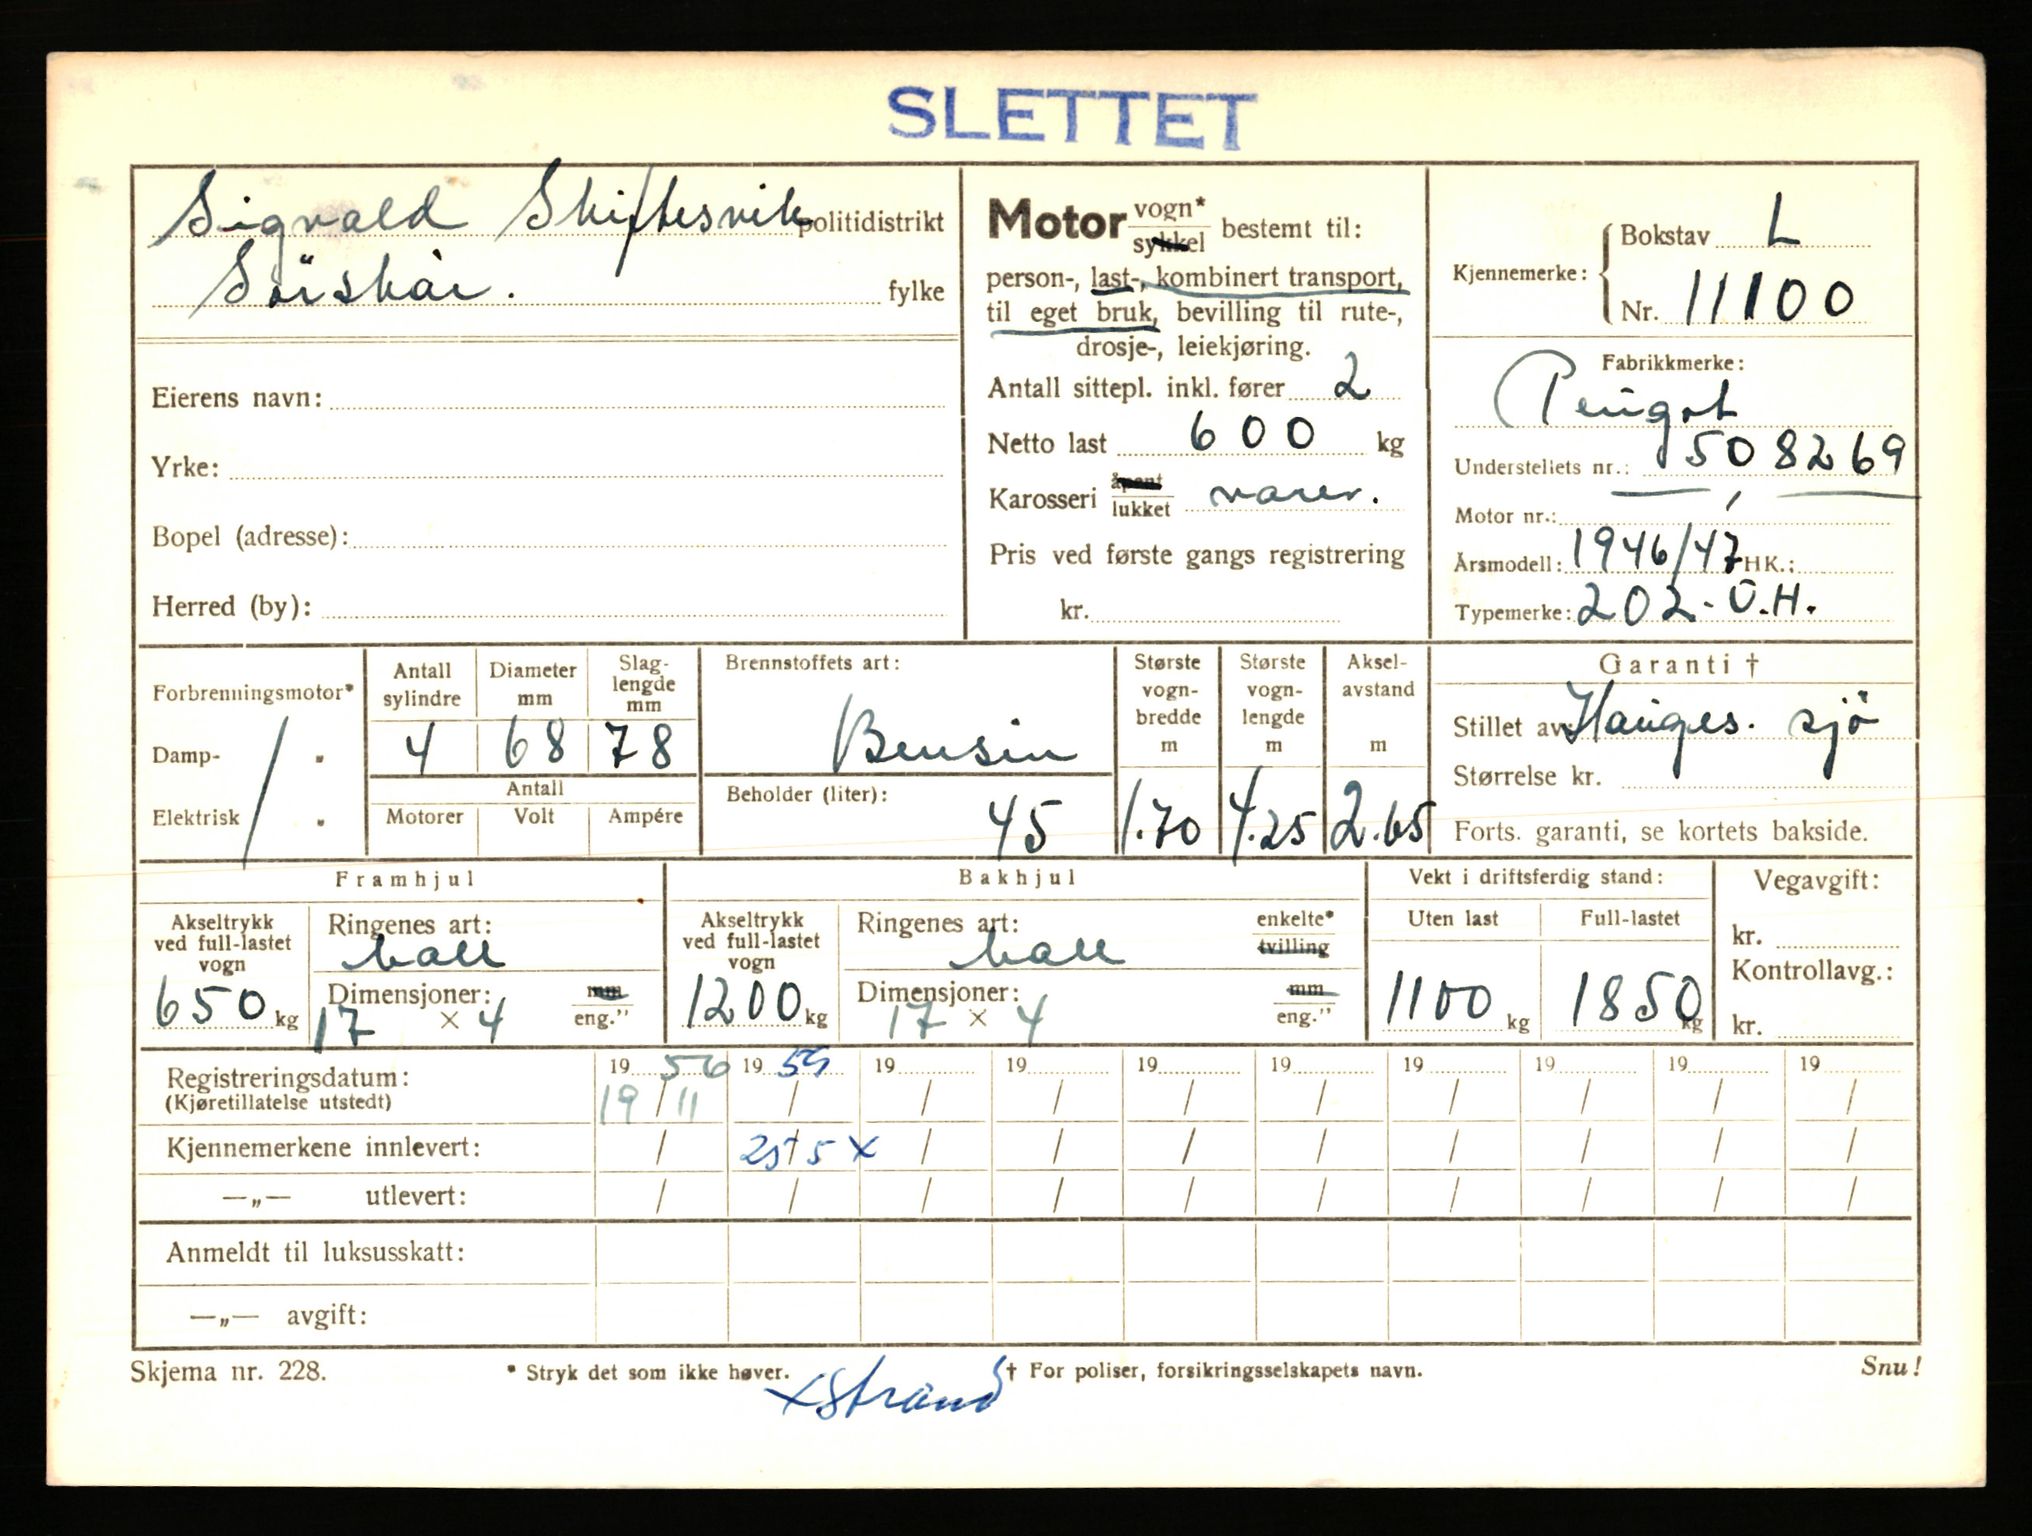 SLETTET
Sigvald Skiftesvik politidistrikt
Sörskår. fylke
Eierens navn:
Yrke:
Bopel (adresse):
Herred (by):
Motor vogn* sykkel bestemt til:
person-, last-, kombinert transport,
til eget bruk, bevilling til rute-,
drosje-, leiekjøring.
Antall sittepl. inkl. fører 2
Netto last 600 kg
Karosseri åpent lukket varev.
Pris ved første gangs registrering
kr.
Kjennemerke: Bokstav L
Nr. 11100
Fabrikkmerke:
Peugot
Understellets nr.: 508269
Motor nr.:
Årsmodell: 1946/47 HK.:
Typemerke: 202-U.H.
Forbrenningsmotor*
Damp- "
Elektrisk "
Antall sylindre Diameter mm Slag-lengde mm
4 68 78
Antall
Motorer Volt Ampére
Brennstoffets art:
Bensin
Beholder (liter):
45
Største vogn-bredde m
1.70
Største vogn-lengde m
4.25
Aksel-avstand m
2.65
Garanti †
Stillet av: Hauges. sjö
Størrelse kr.
Forts. garanti, se kortets bakside.
Framhjul
Akseltrykk ved full-lastet vogn
650 kg
Ringenes art:
ball
Dimensjoner: mm eng."
17 × 4
Bakhjul
Akseltrykk ved full-lastet vogn
1200 kg
Ringenes art: enkelte* tvilling
ball
Dimensjoner: mm eng."
17 × 4
Vekt i driftsferdig stand:
Uten last Full-lastet
1100 kg 1850 kg
Vegavgift:
kr.
Kontrollavg.:
kr.
Registreringsdatum: 19 56 19 59 19 19 19 19 19 19 19 19
(Kjøretillatelse utstedt) 19/11 / / / / / / / / /
Kjennemerkene innlevert: / 25/5 x / / / / / / / /
—„— utlevert: / / / / / / / / / /
Anmeldt til luksusskatt:
—„— avgift:
Skjema nr. 228. * Stryk det som ikke høver. † For poliser, forsikringsselskapets navn. Snu!
x Strand